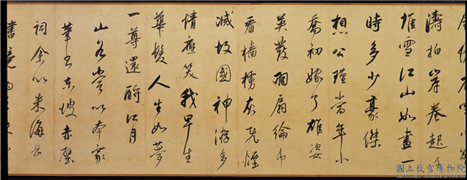 濤拍岸卷起
堆雪江山如畫一
時多少豪傑
想公瑾當年小
喬初嫁了雄姿
英發羽扇綸巾
看檣櫓灰飛煙
滅故國神游多
情應笑我早生
華髮人生如夢
一尊還酹江月
山谷嘗以本家
筆書東坡赤壁
詞余以米海岳
書意
國立故宮博物院